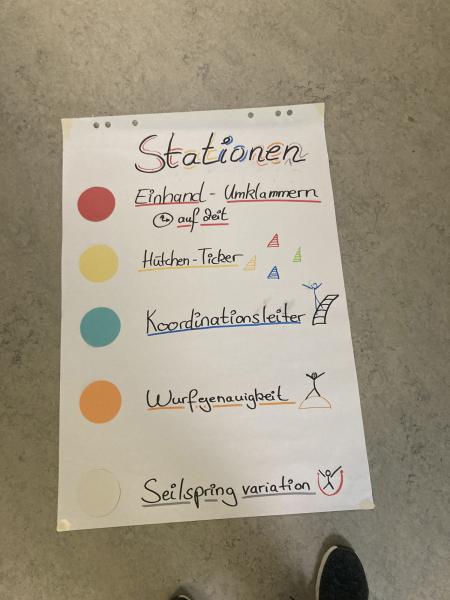 Stationen
Einhand - Umklammern
auf Zeit
Hütchen-Ticker
Koordinationsleiter
Wurfgenauigkeit
Seilspring variation